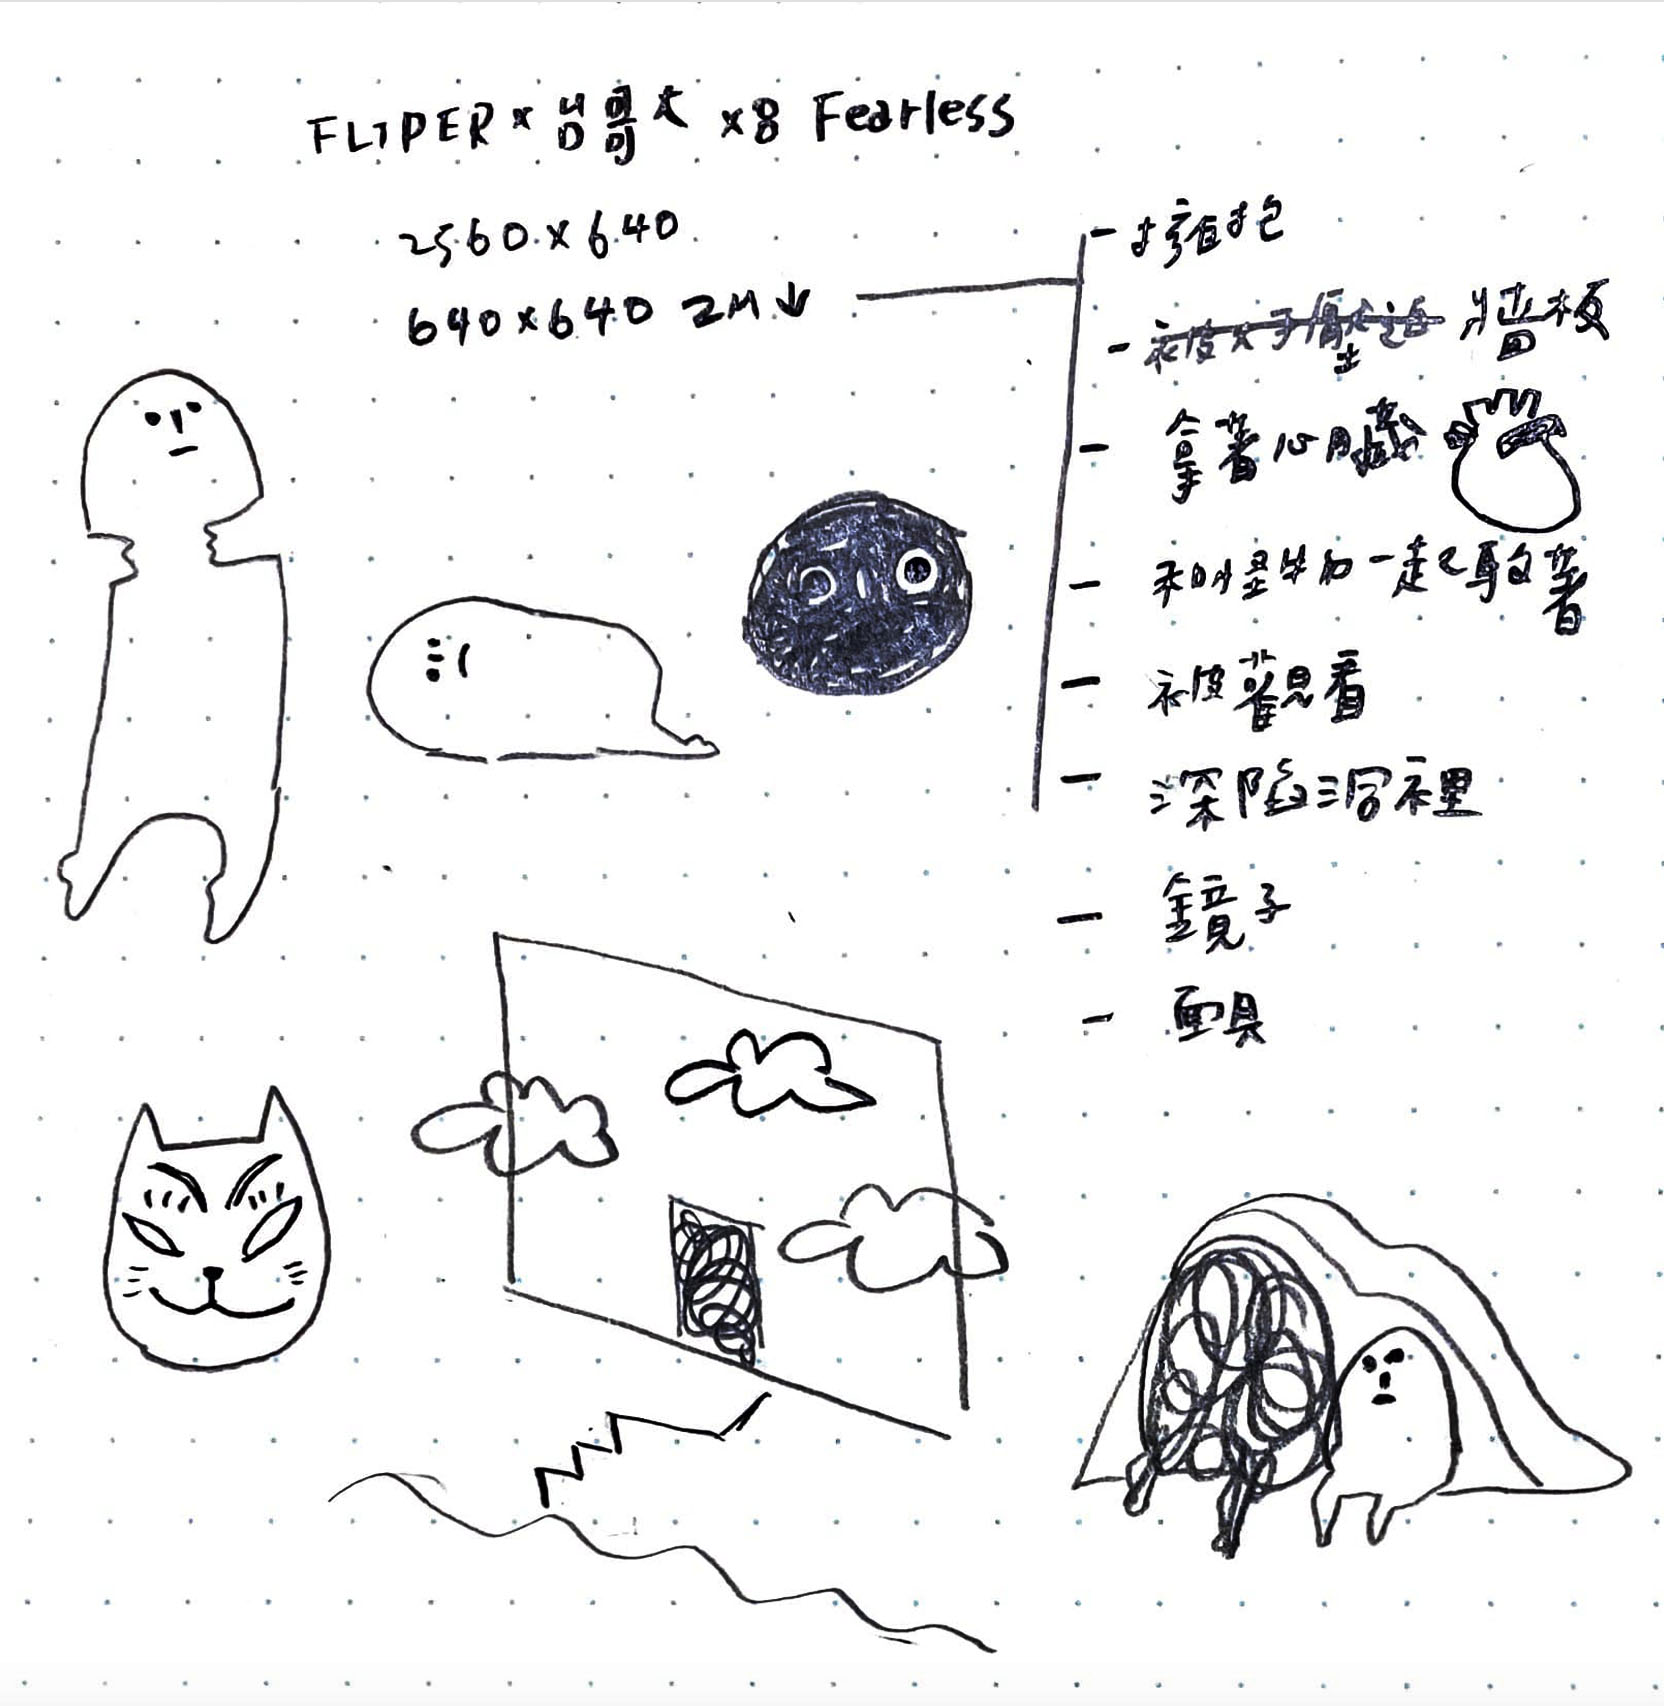 FLIPER × 台哥大 ×8 Fearless
2560 × 640
640×640 2M↓
- 擁抱
- 牆板
- 拿著心臟
- 和怪物一起
- 被觀看
- 深陷洞裡
- 鏡子
- 面具